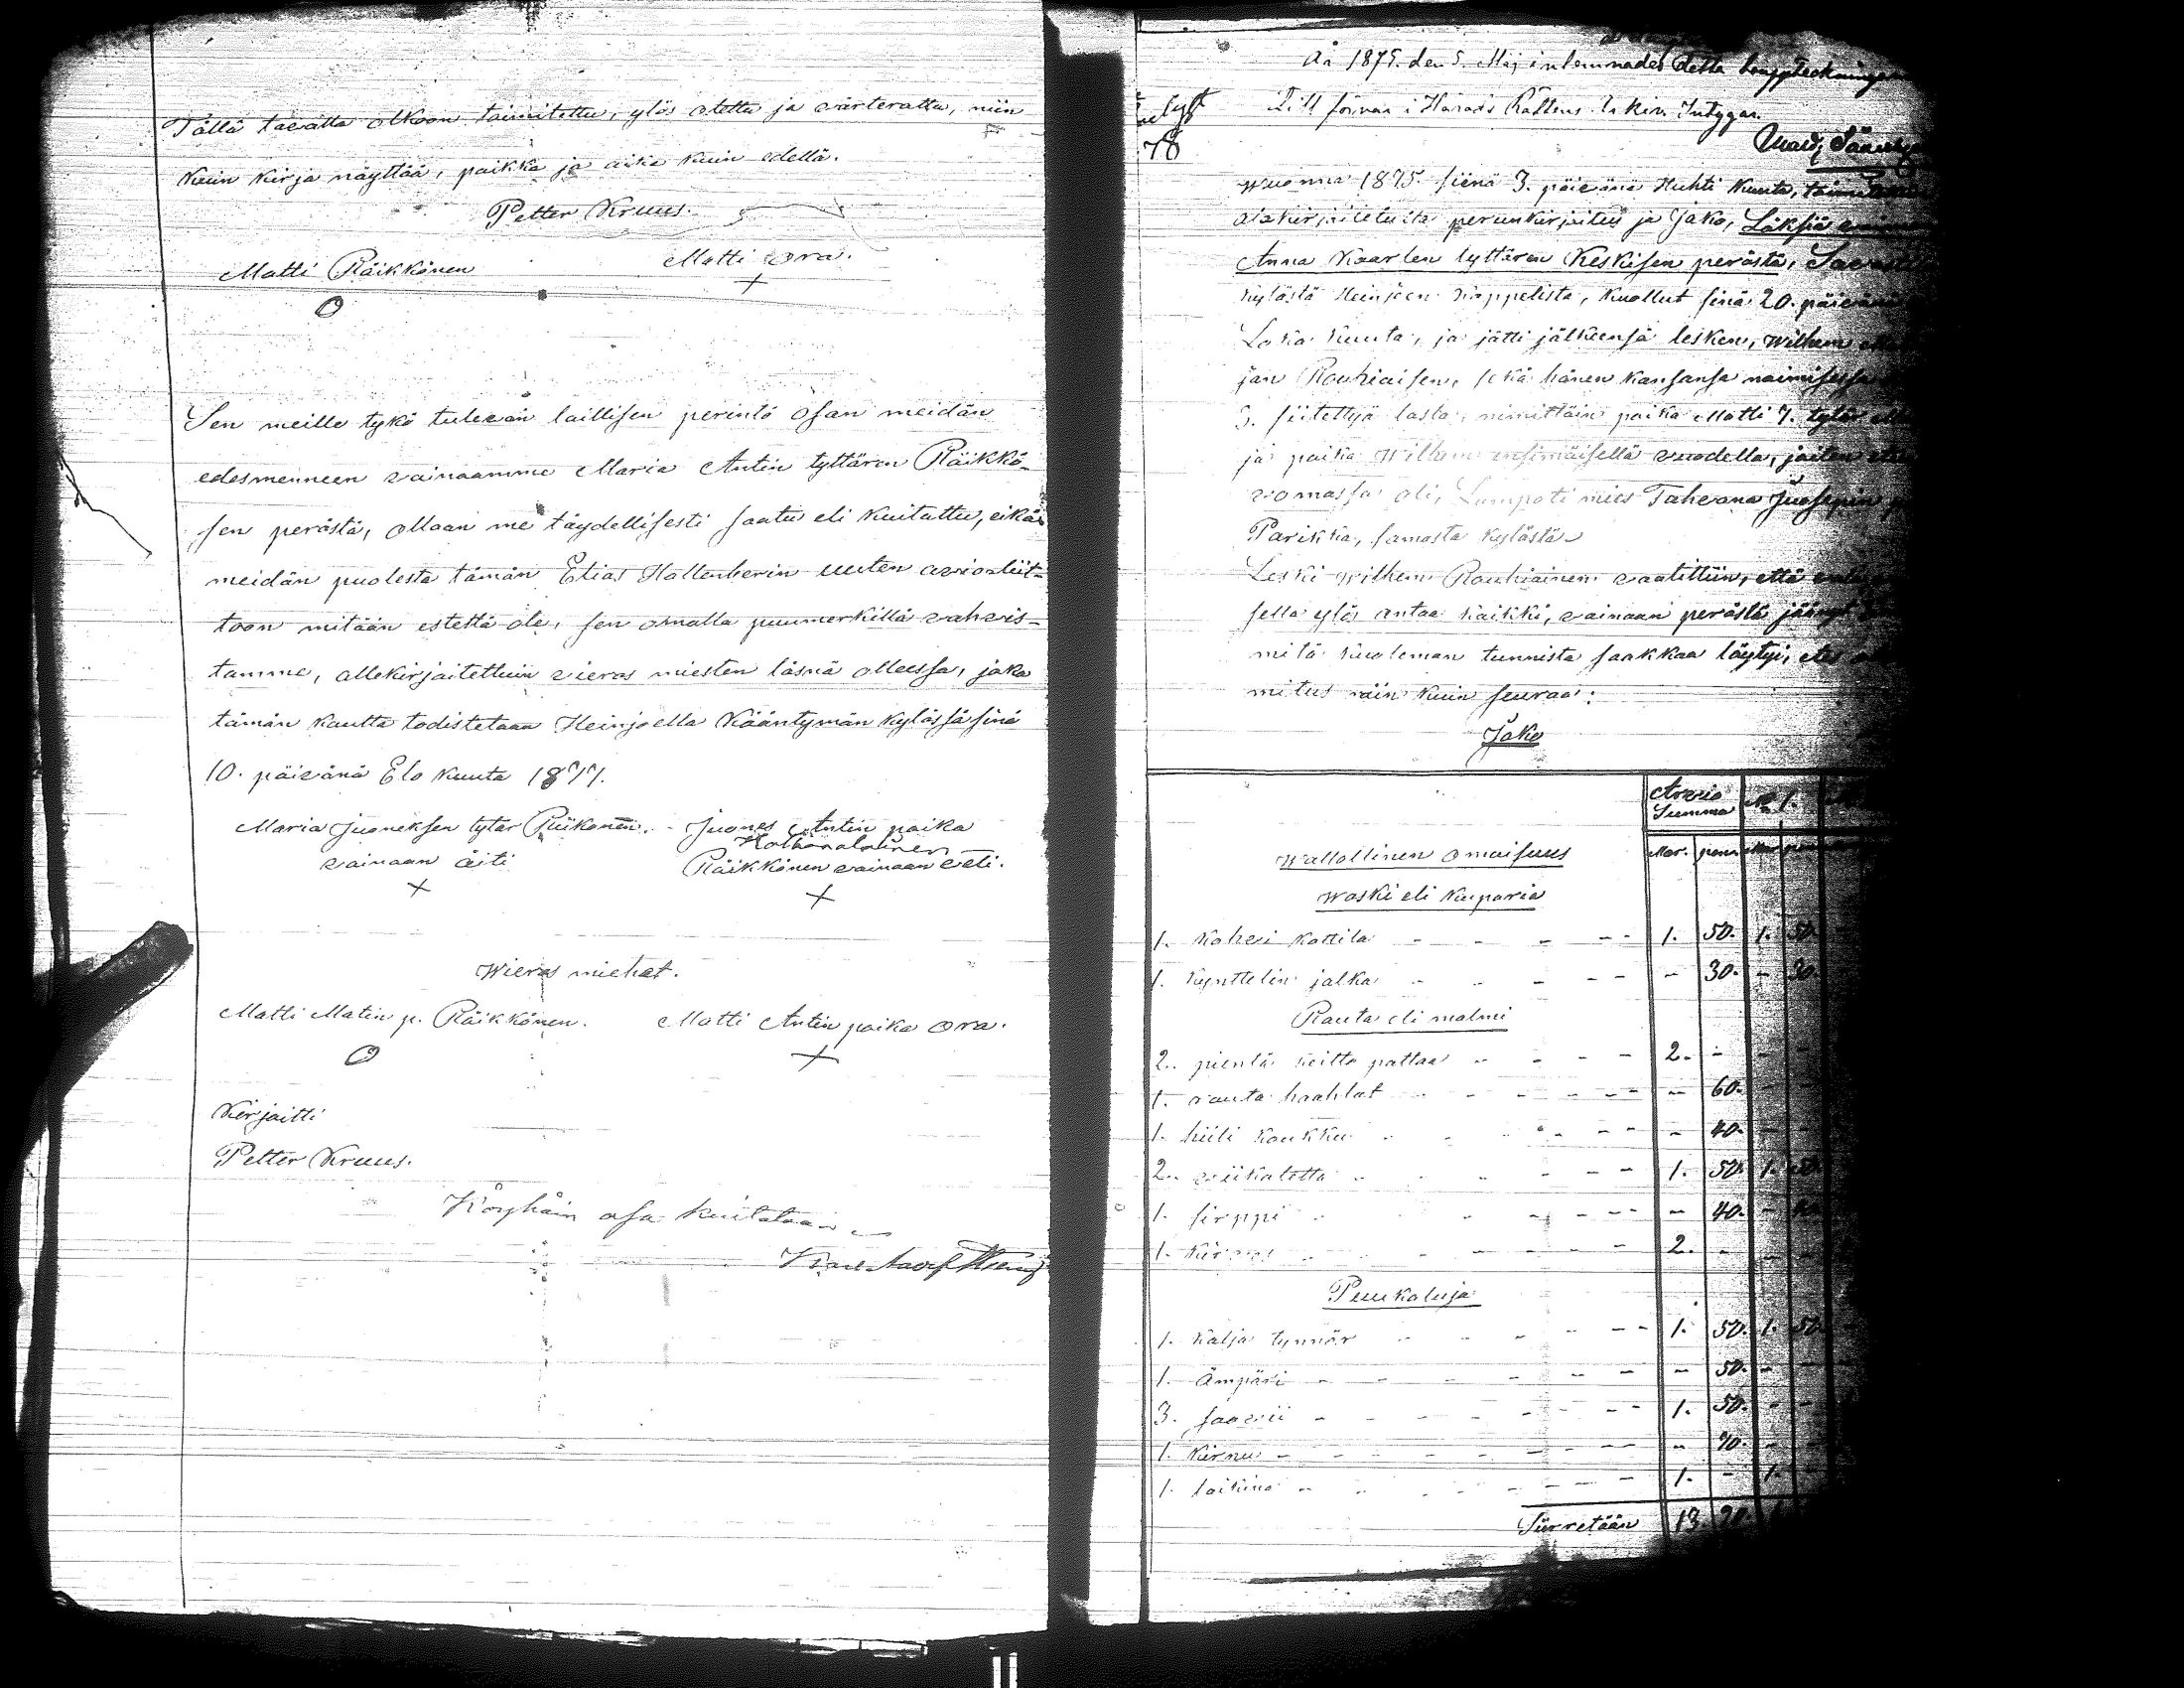 Tällä tavalla olkoon toimitettu, ylös otettu ja värterattu, niin
kuin kirja näyttää, paikka ja aika kuin edellä.
Petter Kruus.
Matti Räikkönen
Matti Ora.
Sen meille tykö tulevan laillisen perintö osan meidän
edesmenneen vainaamme Maria Antin tyttären Räikkö-
sen perästä, ollaan me täydellisesti saatu eli kuitattu, eikä
meidän puolesta tämän Elias Hallenberin uuten avioliit-
toon mitään estettä ole, sen omalla puumerkillä vahvis-
tamme, allekirjoitettuin vieras miesten läsnä olleessa, joka
tämän kautta todistetaan Heinjoella Kääntymän kylässä sinä
10. päivänä Elo kuuta 1877.
Maria Juoneksen tytär Piikonen. Juones Antin poika
vainaan äiti Räikkönen vainaan veli.
Wieras miehet.
Matti Matin p. Räikkönen. Matti Antin poika Ora.
Kirjoitti
Petter Kruus.
Köyhäin osa kuitataan
lyst
78
År 1875 den 5 Maj inlemnades detta
till förvar i Härads Rättens Arkiv. Intygar
Wuonna 1875. sienä 3. päivänä Huhti kuuta,
perunkirjoitus ja jako,
Anna Kaarlen tyttären Keskisen perästä,
kylästä Heinjoen kappelista, kuollut sinä 20. päivänä
Loka kuuta, ja jätti jälkeensä lesken, Wilhem
jan Rouhiaisen, sekä hänen kansansa naimisessa
3. siitettyä lasta, nimittäin poika Matti 7. tytär
ja poika Wilhem ensimäisellä vuodella, joiten
vomassa oli, Lampoti mies Tahvana Juosepin
Parikka, samasta kylästä
Leski Wilhem Rouhiainen vaatittiin, että
sella ylös antaa kaikki, vainaan perästä
mitä kuoleman tunnista saakkaa löytyi,
mitus niin kuin seuraa:
Jako
Arvio Summa No 1.
Mar. penn
Wallollinen omaisuus
Waski eli kuparia
1. kahvi kattila 1. 50. 1. 50.
1. kynttelin jalka - 30. - 30.
Rauta eli malmi
2. pientä keitto pattaa 2. -
1. rauta haahlat - 60.
1. hiili koukku - 40.
2. viikatetta 1. 50. 1. 50.
1. sirppi - 40.
1. kirves 2. -
Puukaluja
1. kalja tynnör 1. 50. 1. 50.
1. Ämpäri - 50.
3. saavii 1. 50.
1. kirnu - 70.
1. taikina 1. - 1.
Siirretään 13.